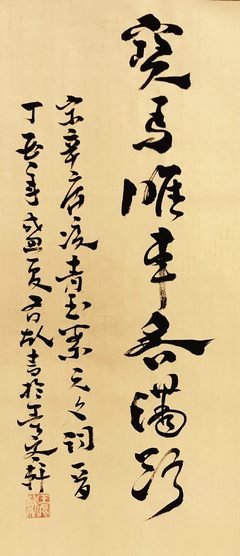 寶馬雕車香滿路
宋辛弃疾青玉案元夕詞一首
丁酉年盛夏書於軒